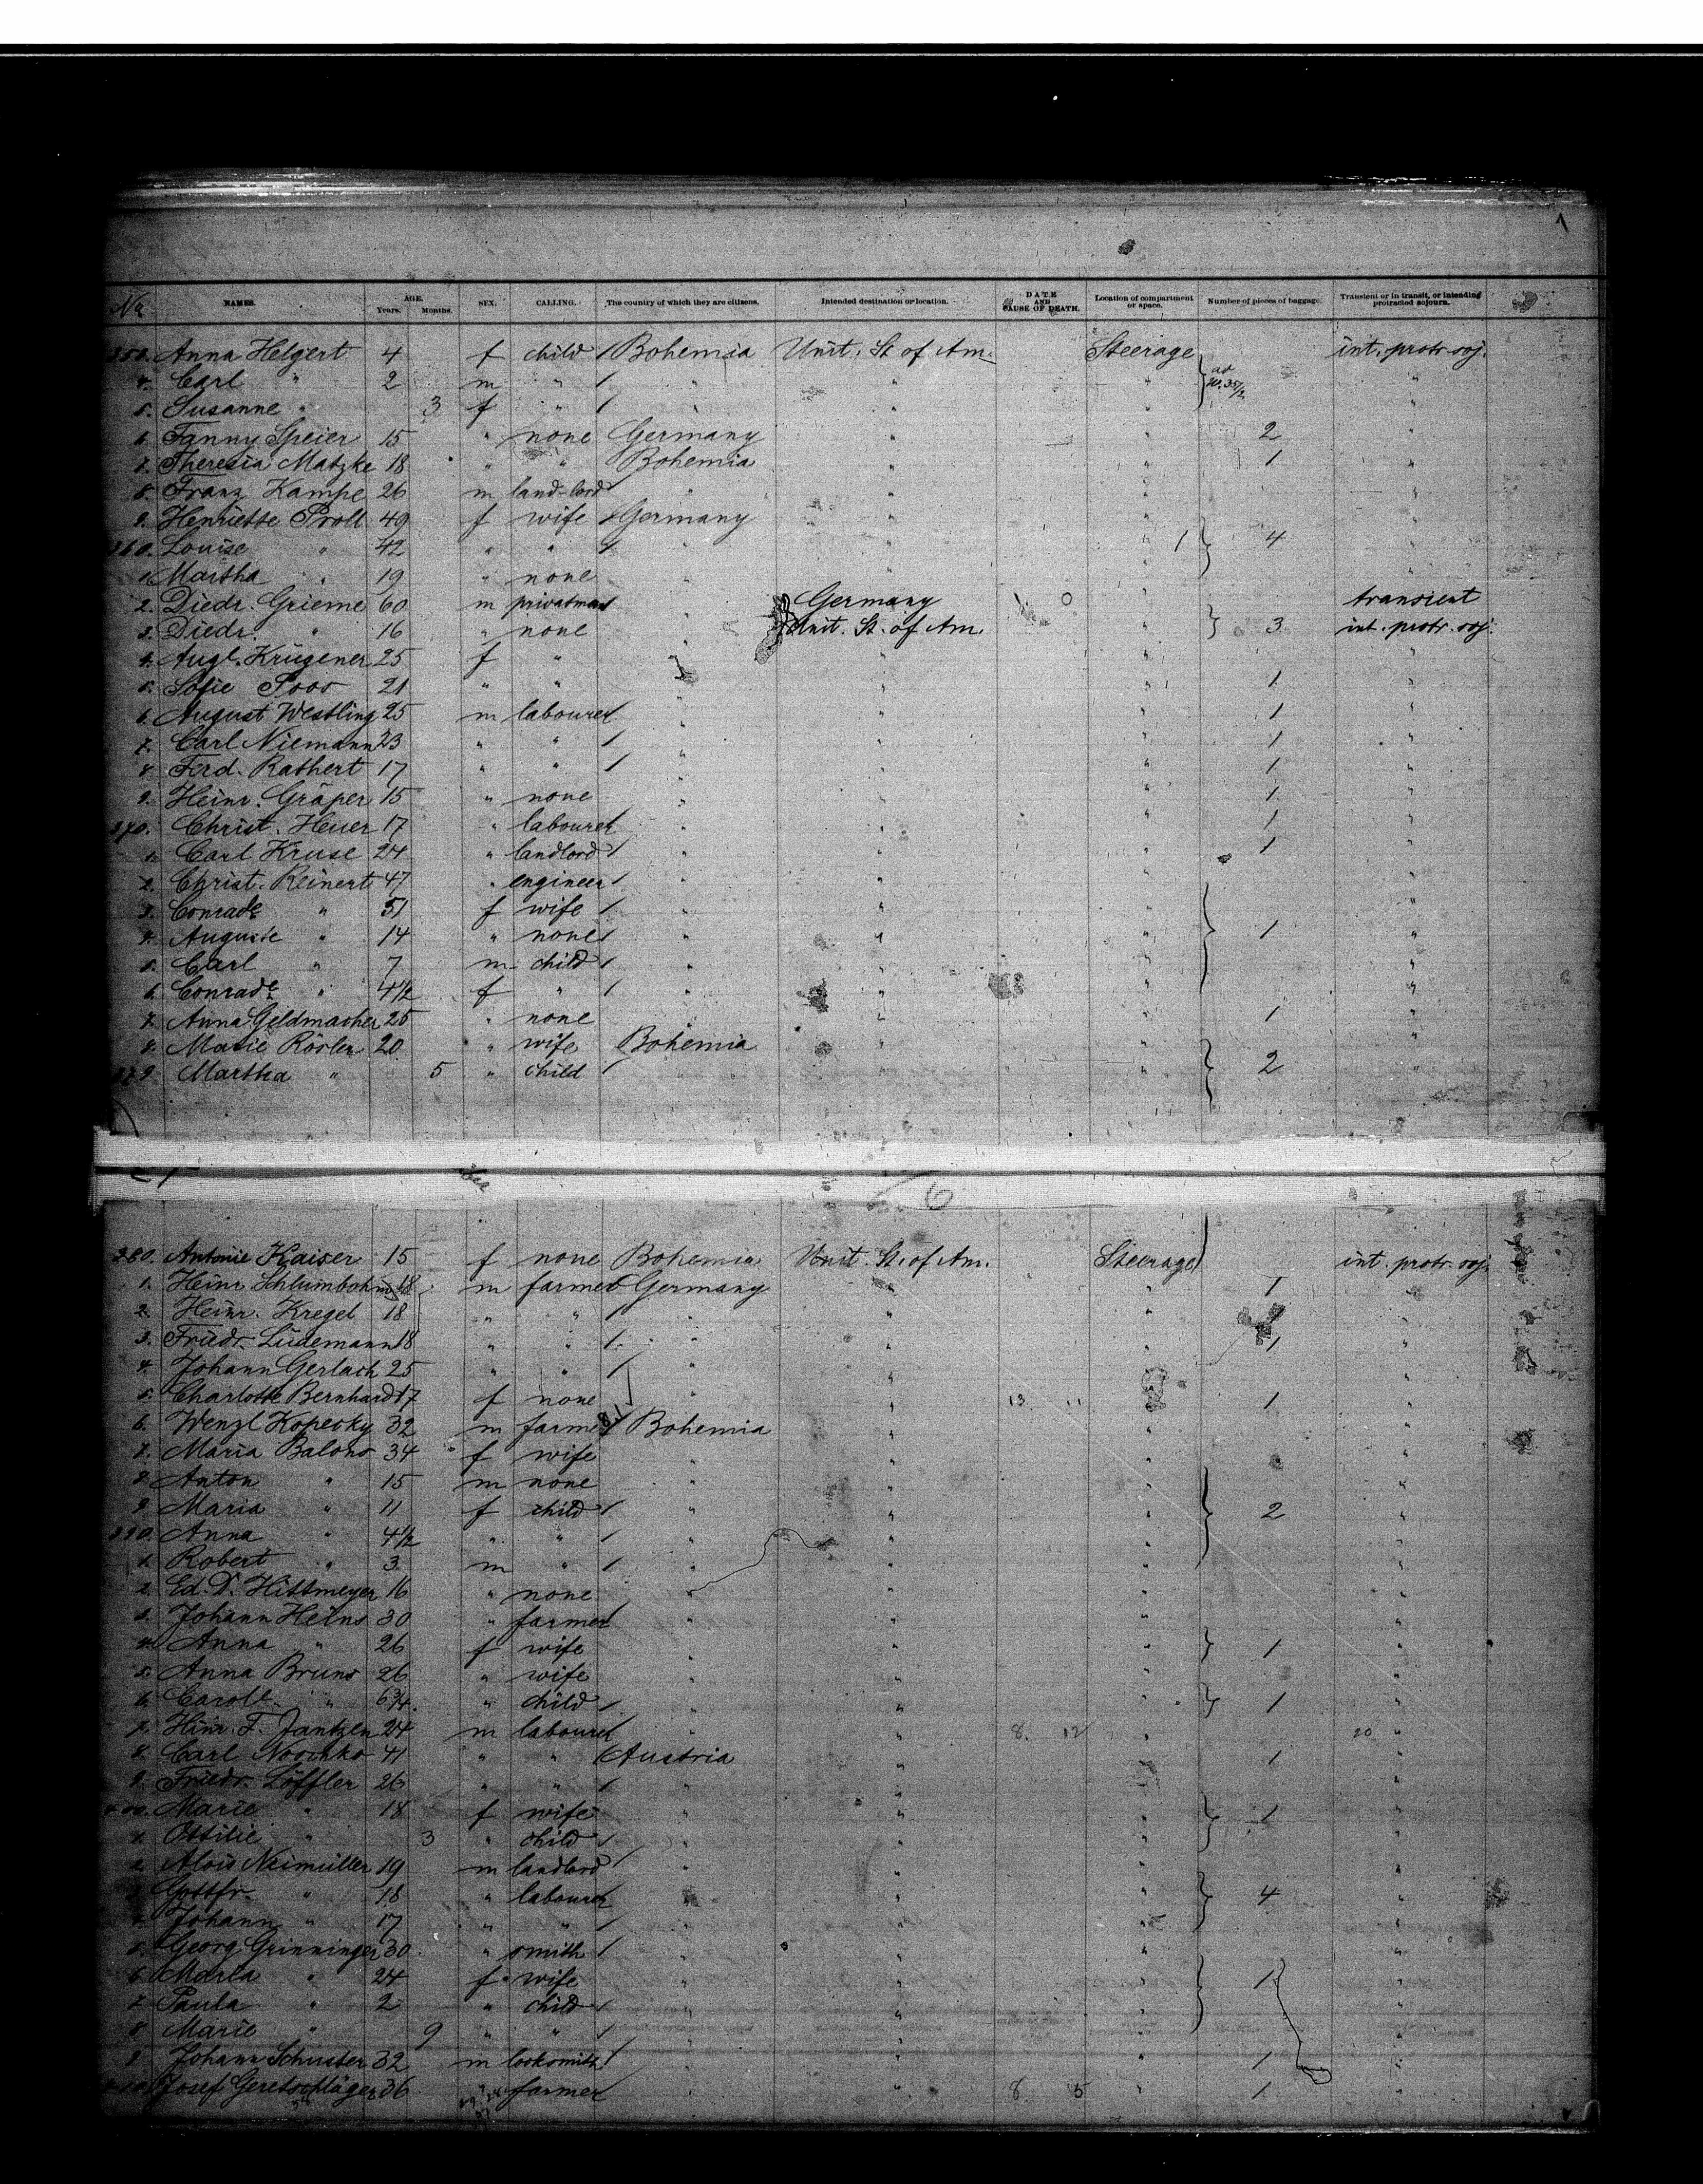 No NAMES. AGE. Years. Months. SEX. CALLING. The country of which they are citizens. Intended destination or location. DATE AND CAUSE OF DEATH. Location of compartment or space. Number of pieces of baggage. Transient or in transit, or intending protracted sojourn.
Anna Helgert 4 f child Bohemia Unit. St of Am. Steerage int. protr. soj.
4. Carl " 2 m " " " " "
5. Susanne " 3 f " " " " "
6. Fanny Speier 15 " none Germany " " 2 "
7. Theresia Matzke 18 " " Bohemia " " 1 "
8. Franz Kampe 26 m land-lord " " " "
9. Henriette Proll 49 f wife Germany " " "
360. Louise " 42 " " " " " 4 "
1. Martha " 19 " none " " " "
2. Diedr. Grieme 60 m privatman " Germany " transient
3. Diedr. " 16 " none " Unit. St. of Am. " 3 int. protr. soj.
4. Augl. Krügener 25 f " " " " "
5. Sofie Poos 21 " " " " " 1 "
6. August Westling 25 m labourer " " " 1 "
7. Carl Niemann 23 " " " " " 1 "
8. Ferd. Rathert 17 " " " " " 1 "
9. Heinr. Gräper 15 " none " " " 1 "
370. Christ. Heuer 17 " labourer " " " 1 "
1. Carl Kruse 24 " landlord " " " 1 "
2. Christ. Reinert 47 " engineer " " " "
3. Conrade " 51 f wife " " " "
4. Auguste " 14 " none " " " 1 "
5. Carl " 7 m child " " " "
6. Conrade " 4 1/2 f " " " " "
7. Anna Geldmacher 25 " none " " " 1 "
8. Marie Rösler 20 " wife Bohemia " " "
379 Martha " 5 " child " " " 2 "
6
380. Antonie Kaiser 15 f none Bohemia Unit. St. of Am. Steerage int. protr. soj.
1. Heinr. Schlumbohm 18 m farmer Germany " " 1 "
2. Heinr. Kregel 18 " " " " " "
3. Friedr. Lüdemann 18 " " " " " 1 "
4. Johann Gerlach 25 " " " " " "
5. Charlotte Bernhard 17 f none " " " 1 "
6. Wenzl Kopecky 32 m farmer Bohemia " " "
7. Maria Balons 34 f wife " " " "
8. Anton " 15 m none " " " "
9. Maria " 11 f child " " " 2 "
390. Anna " 4 1/2 " " " " " "
1. Robert " 3 m " " " " "
2. Ed. D. Hittmeyer 16 " none " " " "
3. Johann Heins 30 " farmer " " " "
4. Anna " 26 f wife " " " 1 "
5. Anna Bruns 26 " wife " " " "
6. Caroll. " 6 3/4 " child " " " 1 "
7. Hinr. F. Jantzen 24 m labourer " " 8. 12 " 20 "
8. Carl Noschko 41 " " Austria " " 1 "
9. Friedr. Löffler 26 " " " " " "
400. Marie " 18 f wife " " " 1 "
1. Ottilie " 3 " child " " " "
2. Alois Neimüller 19 m landlord " " " "
3. Gottfr. " 18 " labourer " " " 4 "
4. Johann " 17 " " " " " "
5. Georg Grinninger 30 " smith " " " "
6. Maria " 24 f wife " " " 1 "
7. Paula " 2 " child " " " "
8. Marie " 9 " " " " " "
9. Johann Schuster 32 m locksmith " " " 1 "
Josef Geretschläger 36 " farmer " " 8 5 " 1 "